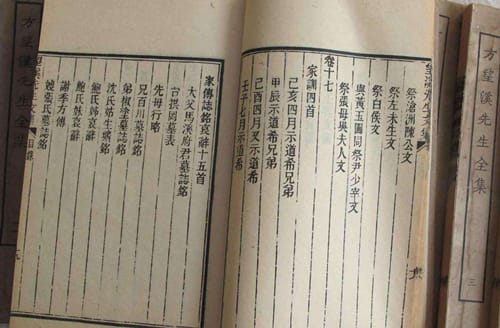 方望溪先生全集
祭滄洲陳公文
祭左未生文
祭白侯文
與黃玉圃同祭尹少宰文
祭張母吳夫人文
卷十七
家訓四首
己亥四月示道希兄弟
甲辰示道希兄弟
己酉四月又示道希
壬子七月示道希
家傳誌銘哀辭十五首
大父馬溪府君墓誌銘
台拱岡墓表
先母行略
兄百川墓誌銘
弟椒塗墓誌銘
沈氏姑生壙銘
鮑氏姊哀辭
鮑氏妹哀辭
謝季方傳
嫂張氏墓誌銘
目錄
方望溪先生全集
三